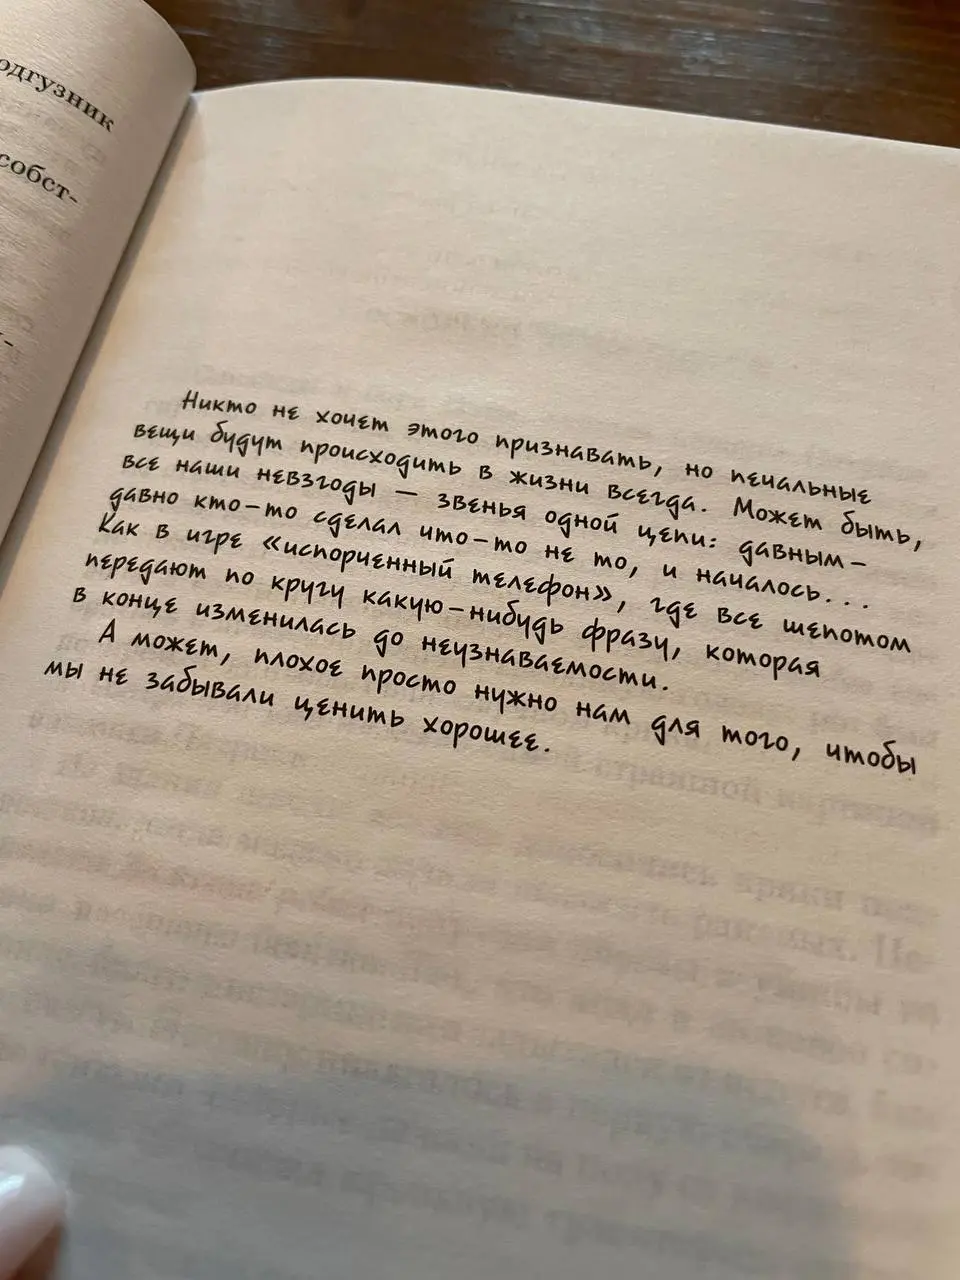 одгузник
собст-
Никто не хочет этого признавать, но печальные
вещи будут происходить в жизни всегда. Может быть,
все наши невзгоды — звенья одной цепи: давным-
давно кто-то сделал что-то не то, и началось...
Как в игре «испорченный телефон», где все шепотом
передают по кругу какую-нибудь фразу, которая
в конце изменилась до неузнаваемости.
А может, плохое просто нужно нам для того, чтобы
мы не забывали ценить хорошее.